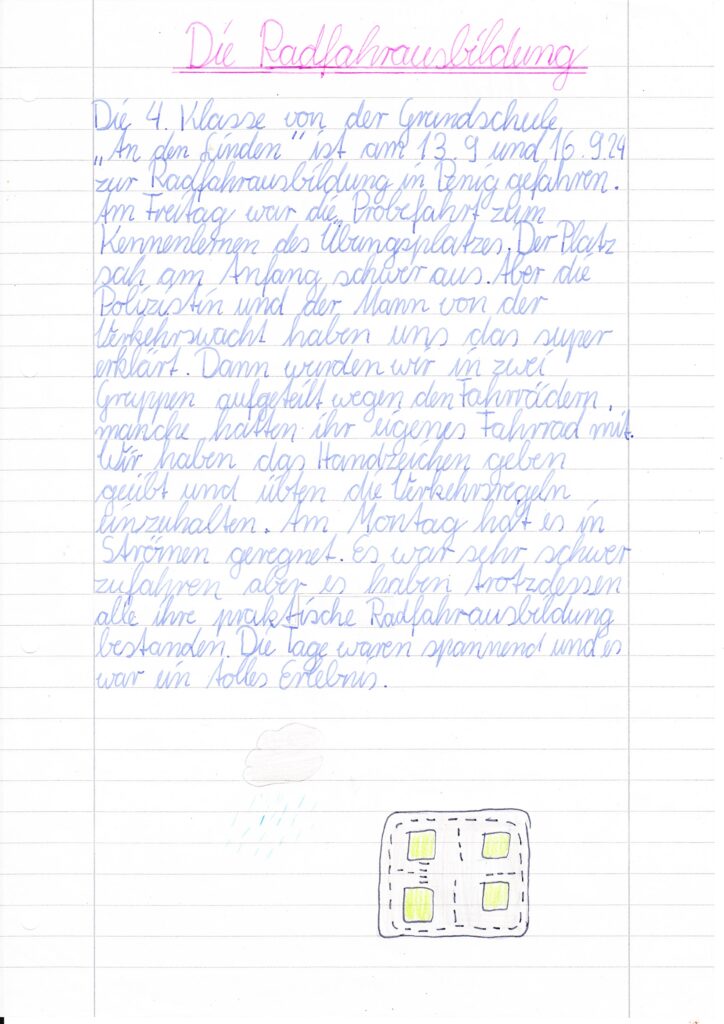 Die Radfahrausbildung
Die 4. Klasse von der Grundschule
„An den Linden" ist am 13.9 und 16.9.24
zur Radfahrausbildung in Penig gefahren.
Am Freitag war die Probefahrt zum
Kennenlernen des Übungsplatzes. Der Platz
sah am Anfang schwer aus. Aber die
Polizistin und der Mann von der
Verkehrswacht haben uns das super
erklärt. Dann wurden wir in zwei
Gruppen aufgeteilt wegen den Fahrrädern,
manche hatten ihr eigenes Fahrrad mit.
Wir haben das Handzeichen geben
geübt und übten die Verkehrsregeln
einzuhalten. Am Montag hat es in
Strömen geregnet. Es war sehr schwer
zufahren aber es haben trotzdessen
alle ihre praktische Radfahrausbildung
bestanden. Die Tage waren spannend und es
war ein tolles Erlebnis.